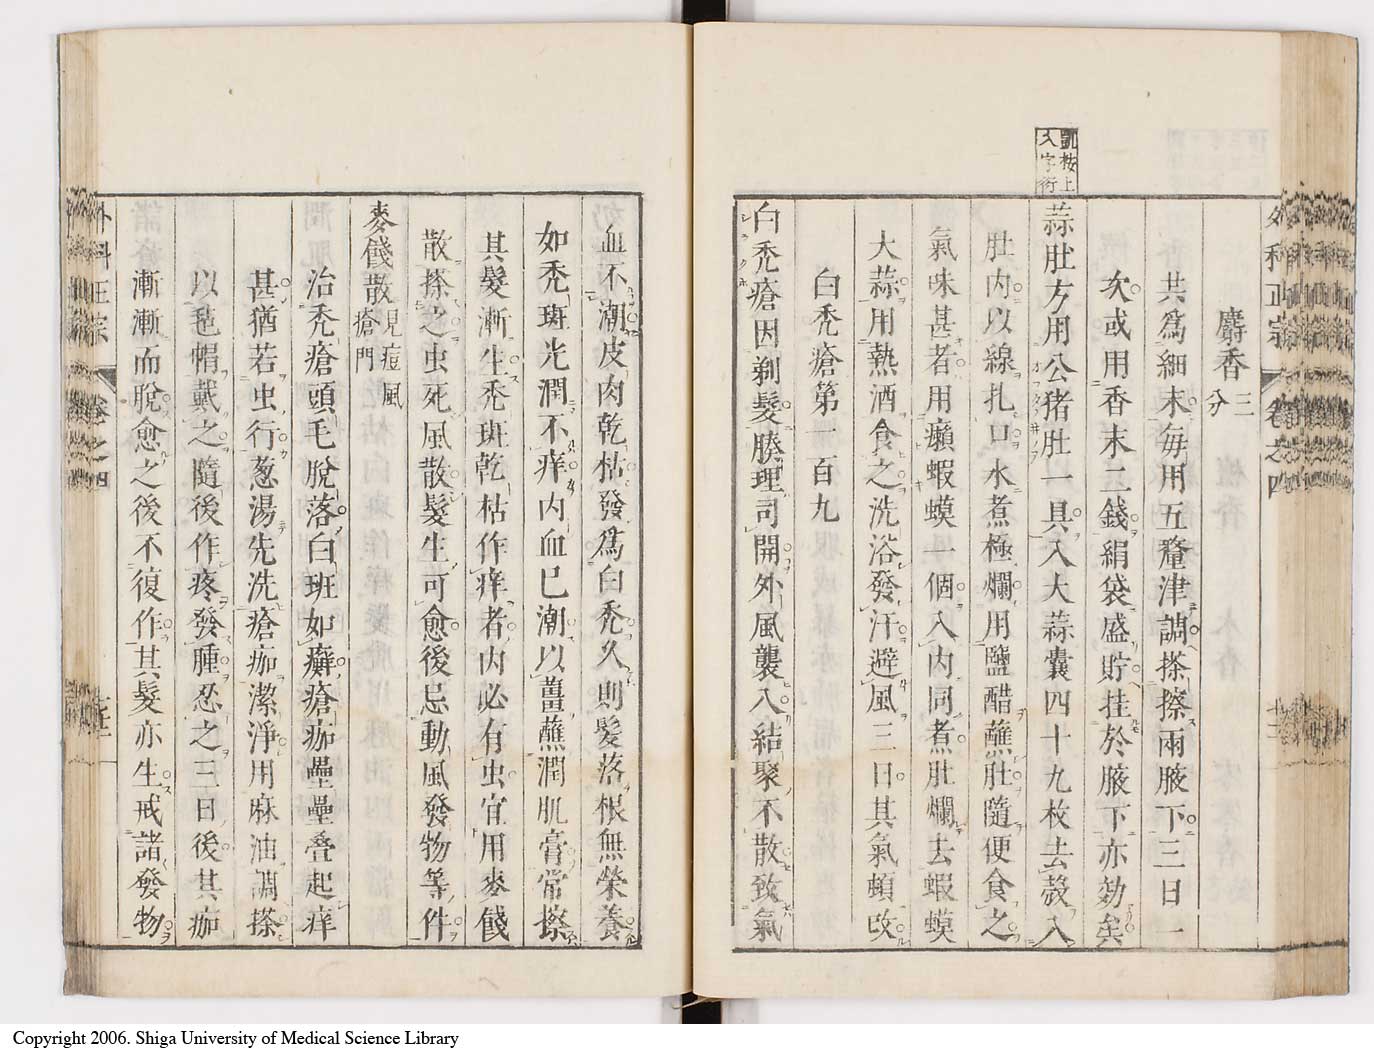 外科正宗 卷之四
麝香三分
凱按上入字衍
共爲細末每用五釐津調搽擦兩腋下三日一
次或用香末二錢絹袋盛貯挂於腋下亦効矣
蒜肚方用公猪肚一具入大蒜囊四十九枚去殼入
肚內以線扎口水煮極爛用鹽醋蘸肚隨便食之
氣味甚者用癩蝦蟆一個入內同煮肚爛去蝦蟆
大蒜用熱酒食之洗浴發汗避風三日其氣頓改
白禿瘡第一百九
白禿瘡因剃髮腠理司開外風襲入結聚不散致氣
血不潮皮肉乾枯發爲白禿久則髮落根無榮養
如禿斑光潤不痒內血已潮以薑蘸潤肌膏常擦
其髮漸生禿斑乾枯作痒者內必有虫宜用麥餞
散搽之虫死風散髮生可愈後忌動風發物等件
麥餞散見痘風瘡門
治禿瘡頭毛脫落白班如癬瘡痂壘壘疊起痒
甚猶若虫行葱湯先洗瘡痂潔淨用麻油調搽
以毡帽戴之隨後作疼發腫忍之三日後其痂
漸漸而脫愈之後不復作其髮亦生戒諸發物
外科正宗 卷之四